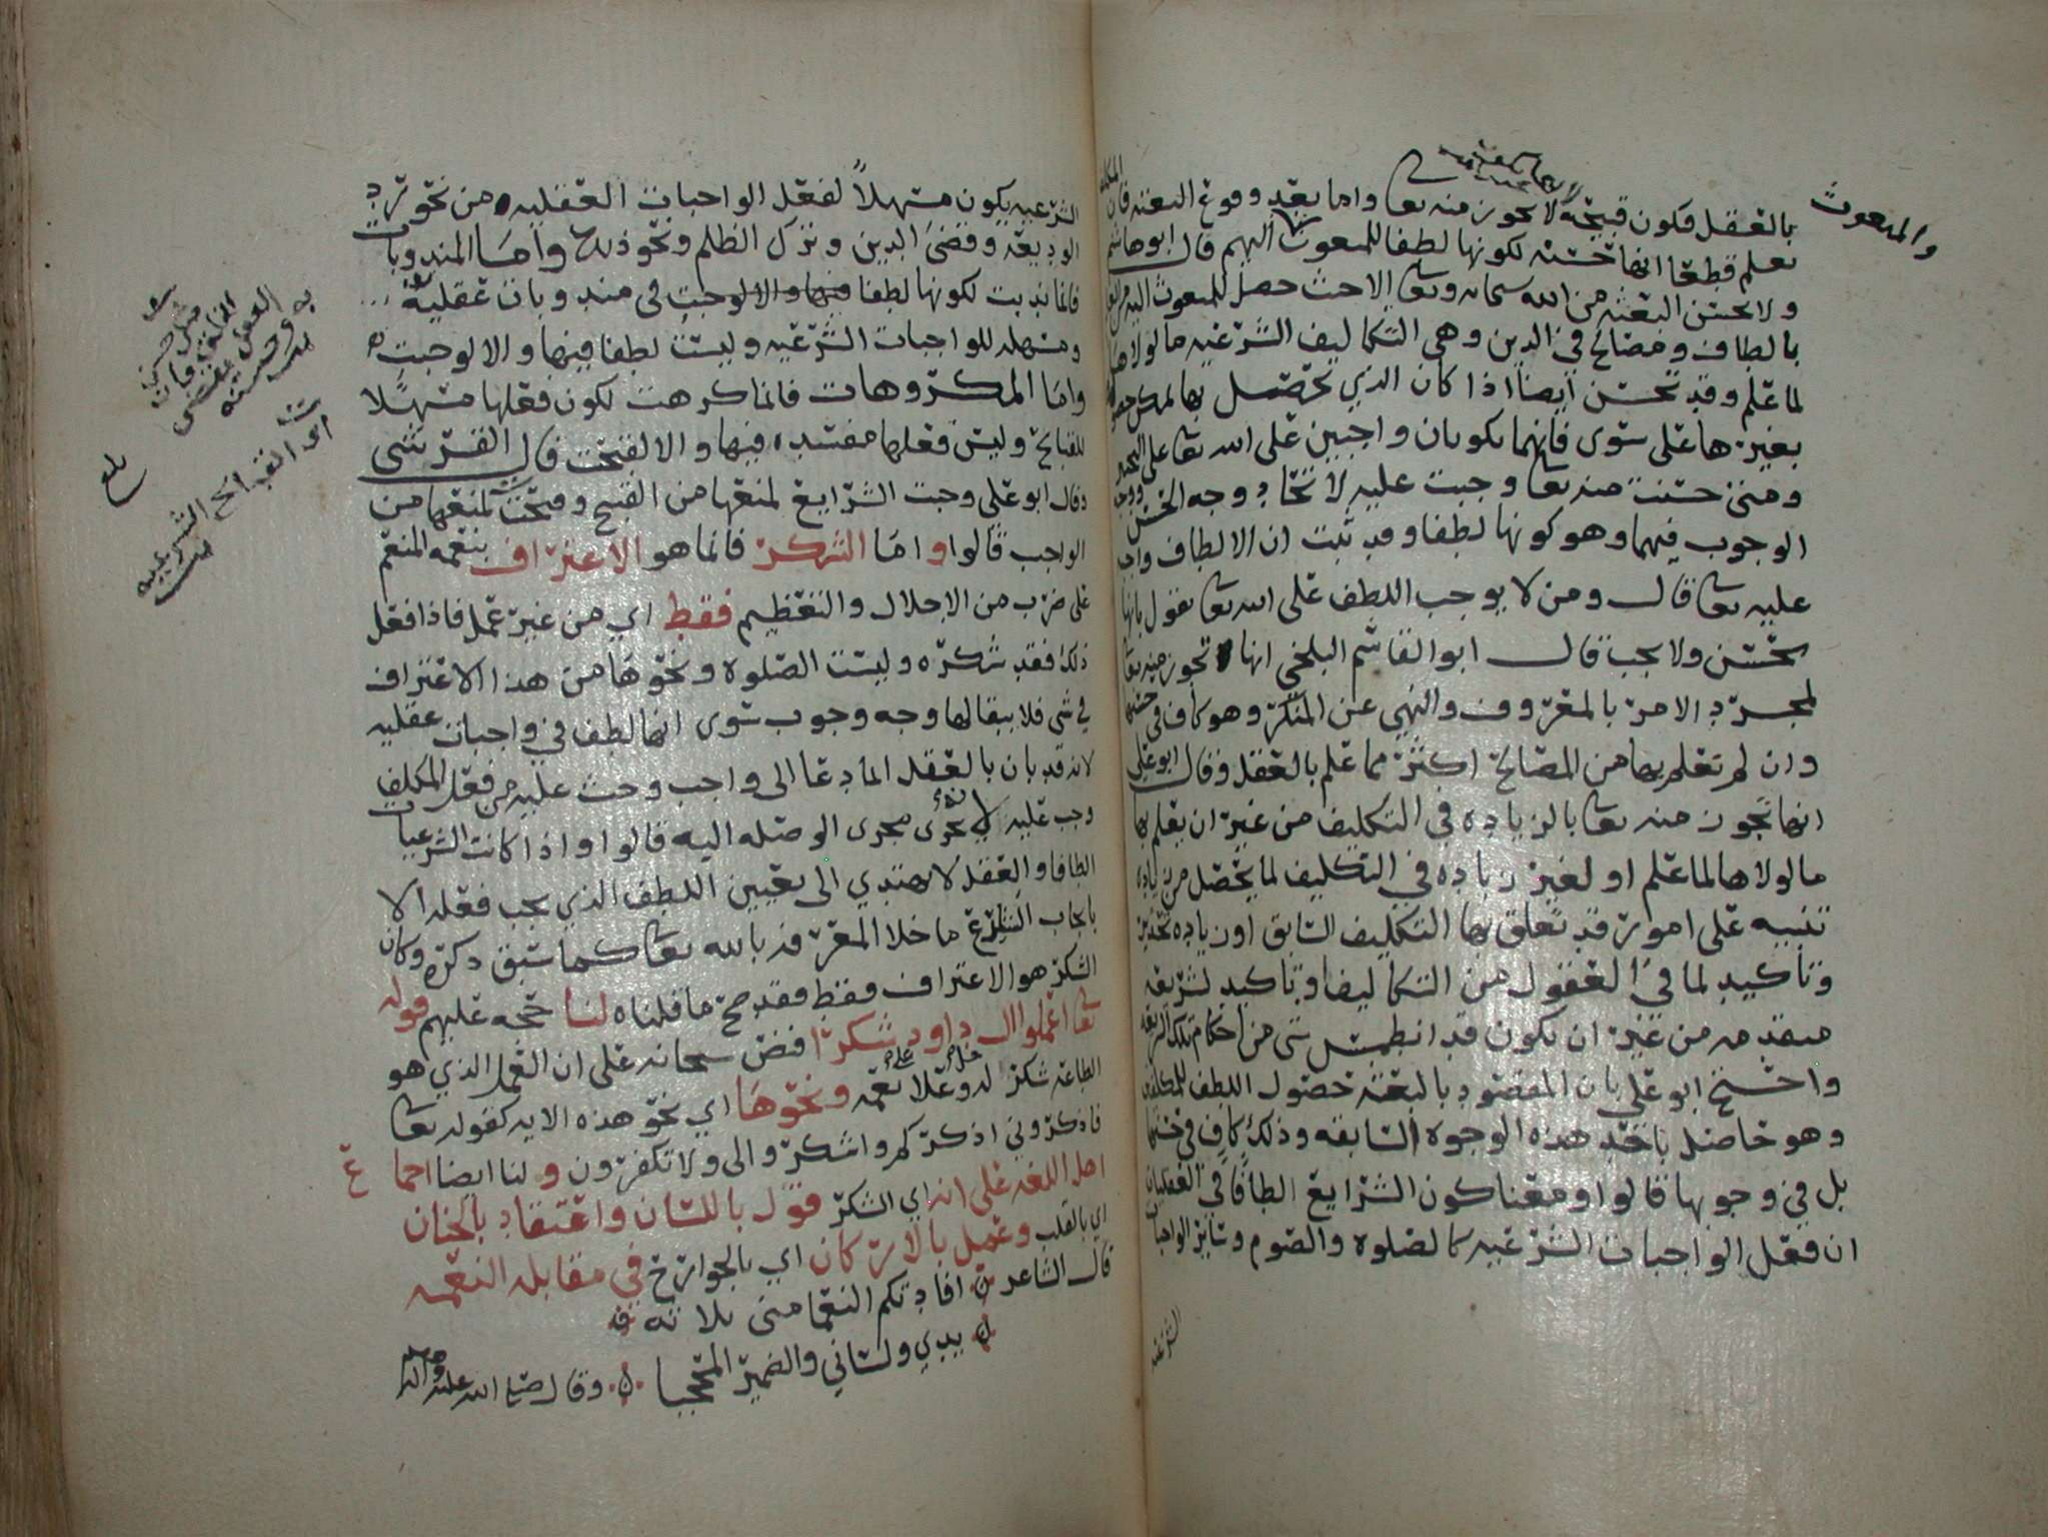 والمبعوث
بالعقل فيكون قبيحه لا يجوز منه تعا واما بعد وقوع البعثه فان
نعلم قطعا انها حسنه لكونها لطفا للمبعوث اليهم قال ابو هاشم
ولا يحسن البعثه من الله سبحانه وتعا الا حيث حصل للمبعوث اليه
بالطاف ومصالح في الدين وهي التكاليف الشرعيه ما لولاها
لما علم وقد تحسن ايضا اذا كان الذي تحصل بها يمكن
بغيرها على سوى فانهما يكونان واجبين على الله تعا على التخيير
ومتى حسنت منه تعا وجبت عليه لاتحاد وجه الحسن ووجه
الوجوب فيهما وهو كونها لطفا وقد ثبت ان الالطاف واجبه
عليه تعا قال ومن لا يوجب اللطف على الله تعا يقول بانها
تحسن ولا يجب قال ابو القاسم البلخي انها تجوز منه تعا
لمجرد الامر بالمعروف والنهي عن المنكر وهو كاف في حسنها
وان لم تعلم بها من المصالح اكثر مما علم بالعقل وقال ابو علي
انها تجوز منه تعا بالزياده في التكليف من غير ان يعلم بها
ما لولاها لما علم او لغير زياده في التكليف لما يحصل من زياده
تنبيه على امور قد تعلق بها التكليف السابق او زياده تحذير
وتاكيد لما في العقول من التكاليف او تاكيد لشريعه
متقدمه من غير ان يكون قد انطمس شى من احكام تلك الشريعه
واحتج ابو علي بان المقصود بالبعثه حصول اللطف للمكلفين
وهو حاصل باحد هذه الوجوه السابقه وذلك كاف في حسنها
بل في وجوبها قالوا ومعنا كون الشرايع الطافا في العقليات
ان فعل الواجبات الشرعيه كالصلوه والصوم وساير الواجبات
الشرعيه
الشرعيه يكون مسهلا لفعل الواجبات العقليه من نحو رد
الوديعه وقضى الدين وترك الظلم ونحو ذلك واما المندوبات
فانما ندبت لكونها لطفا فيها والا لوجبت في مندوبات عقليه
ومسهله للواجبات الشرعيه وليست لطفا فيها والا لوجبت
واما المكروهات فانما كرهت لكون فعلها مسهلا
للقبايح وليس فعلها مفسده فيها والا لقبحت قال القرشي
وقال ابو علي وجبت الشرايع لمنعها من القبيح وقبحت لمنعها من
الواجب قالوا واما الشكر فانما هو الاعتراف بنعمه المنعم
على ضرب من الاجلال والتعظيم فقط اي من غير عمل فاذا فعل
ذلك فقد شكره وليست الصلوه ونحوها من هذا الاعتراف
في شى فلا يبقا لها وجه وجوب سوى انها لطف في واجبات عقليه
لانه قد بان بالعقل ان ما دعا الى واجب وحث عليه من فعل المكلف
وجب عليه لانه يجرى مجرى الوصله اليه قالوا واذا كانت الشرعيات
الطافا والعقل لا يهتدي الى تعيين اللطف الذي يجب فعله الا
بايجاب الشرع ما خلا المعرفه بالله تعا كما سبق ذكره وكان
الشكر هو الاعتراف فقط فقد صح ما قلناه لنا حجه عليهم قوله
تعا اعملوا ال داود شكرا فنص سبحانه على ان العمل الذي هو
الطاعه شكر له جل وعلا على نعمه ونحوها اي نحو هذه الايه كقوله تعا
فاذكروني اذكركم واشكروا لى ولا تكفرون ولنا ايضا اجماع
اهل اللغه على انه اي الشكر قول باللسان واعتقاد بالجنان
اي بالقلب وعمل بالاركان اي بالجوارح في مقابله النعمه
قال الشاعر افادتكم النعما منى ثلاثه
يدي ولساني والضمير المحجبا وقال صلى الله عليه واله وسلم